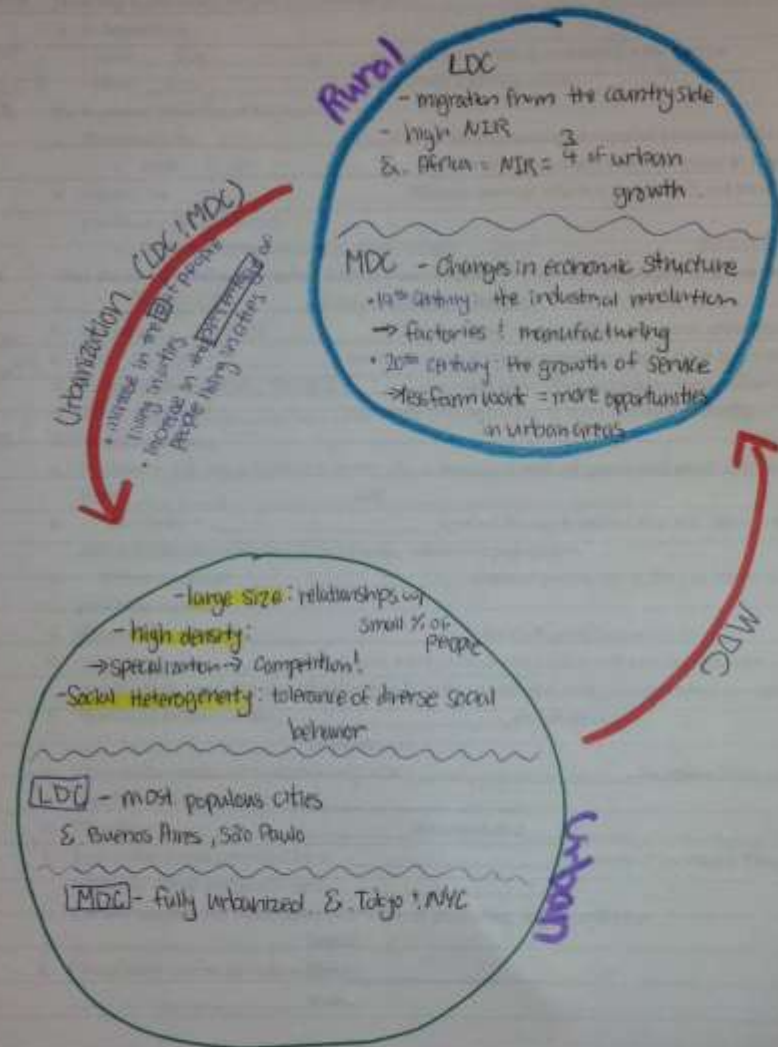 Rural
LDC
- migration from the countryside
- high NIR
& Africa = NIR = 3/4 of urban
growth
MDC - Changes in economic structure
• 19th Century: the industrial revolution
→ factories ! manufacturing
• 20th Century: the growth of service
→ less farm work = more opportunities
in urban areas
Urbanization (LDC ! MDC)
• increase in the # people
living in cities
• increase in the
people living in cities
MDC
Urban
- large size: relationships w/
small % of
people
- high density:
→ specialization → Competition!
- Social Heterogeneity: tolerance of diverse social
behavior
LDC - most populous cities
& Buenos Aires, São Paulo
MDC - fully urbanized & Tokyo + NYC